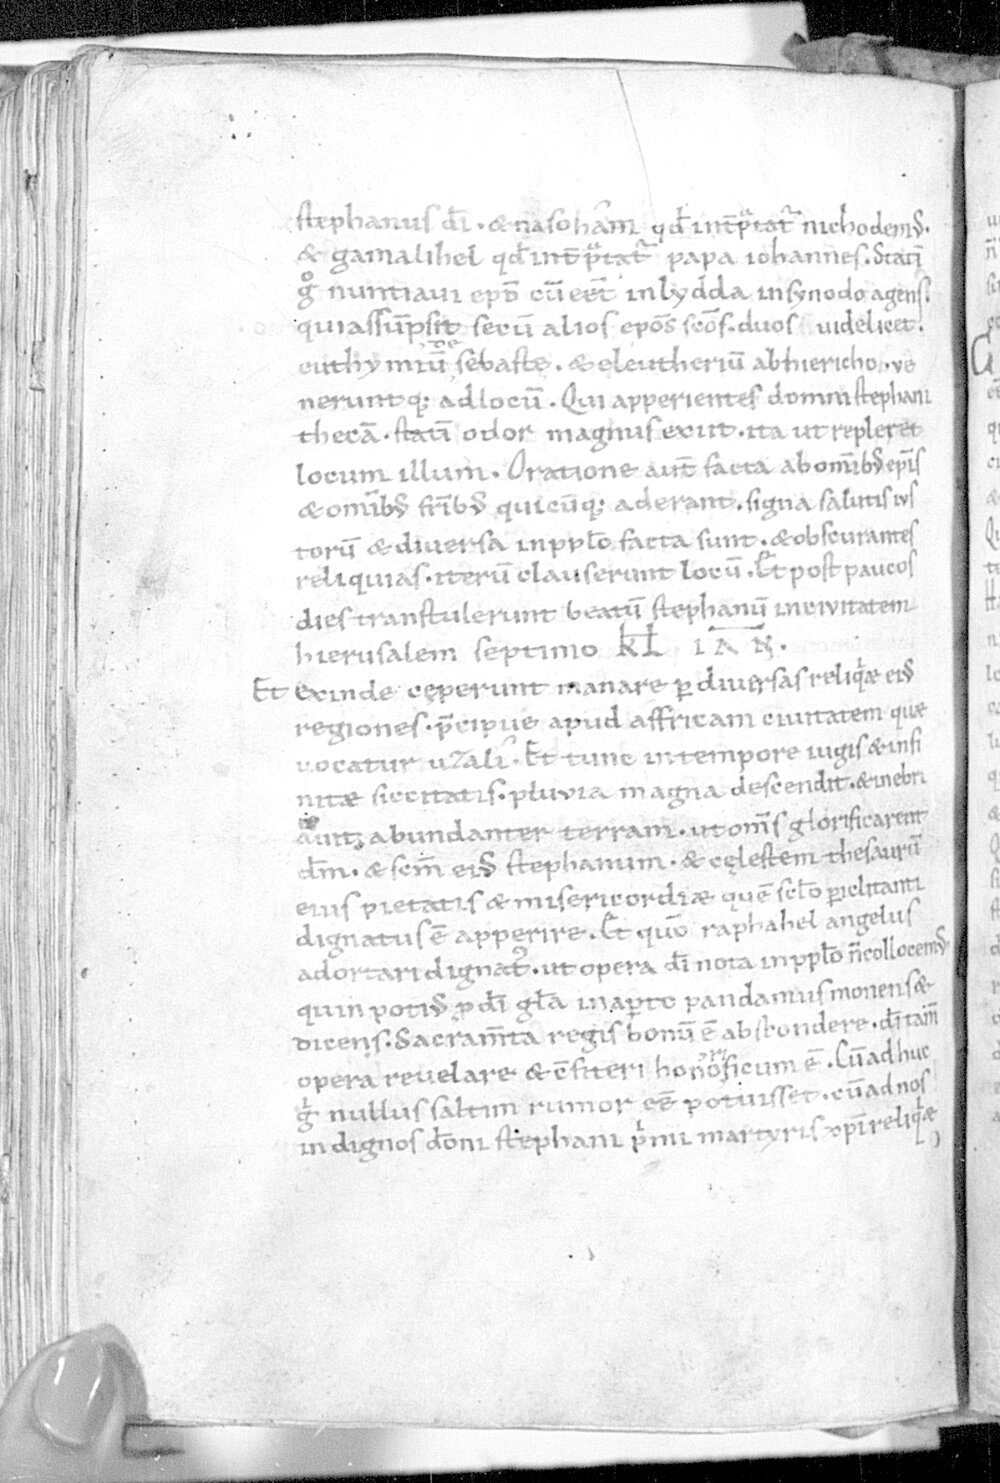 stephanus dī · & nasoham qđ int̄p̄tat̄ nichodemꝰ·
& gamalihel qđ int̄p̄tat̄ papa iohannes. Statī
g̊ nuntiaui ep̄o cū eēt in lydda in synodo agens.
qui assūpsit secū alios ep̄os sc̄os. duos uidelicet.
euthymiū de sebaste. & eleutheriū ab hiericho. ve
neruntq; ad locū. Qui apperientes domni stephani
thecā. statī odor magnus exiit. ita ut repleret
locum illum. Oratione aut̄ facta ab om̄ibꝰ ep̄is
& om̄ibꝰ fr̄ibꝰ quicūq; aderant. signa salutis ius
torū & diversa in pplo facta sunt. & obscurantes
reliquias. iterū clauserunt locū. Et post paucos
dies transtulerunt beatū stephanū in civitatem
hierusalem septimo kl ian.
Et exinde cęperunt manare p̄ diversas reliqæ eiꝰ
regiones. p̄cipue apud affricam ciuitatem quæ
uocatur uzali. Et tunc in tempore iugis & infi
nitæ siccitatis. pluvia magna descendit. & inebri
auit abundanter terram. ut om̄s glorificarent
dm̄. & scm̄ eiꝰ stephanum. & cęlestem thesaurū
eius pietatis & misericordiæ quē scl̄o piclitanti
dignatus ē apperire. Et quō raphahel angelus
adortari dignat̉. ut opera dī nota in pplo n̄ collocemꝰ
quin potiꝰ p̄ dī gl̄a in aperto pandamus monens &
dicens. Sacram̄ta regis bonū ē abscondere. dī tam̄
opera revelare & c̄fiteri honorificum ē. Cū adhuc
g̊ nullus saltim rumor eē potuisset. cū ad nos
in dignos dōni stephani p̄mi martyris xp̄i reliqæ